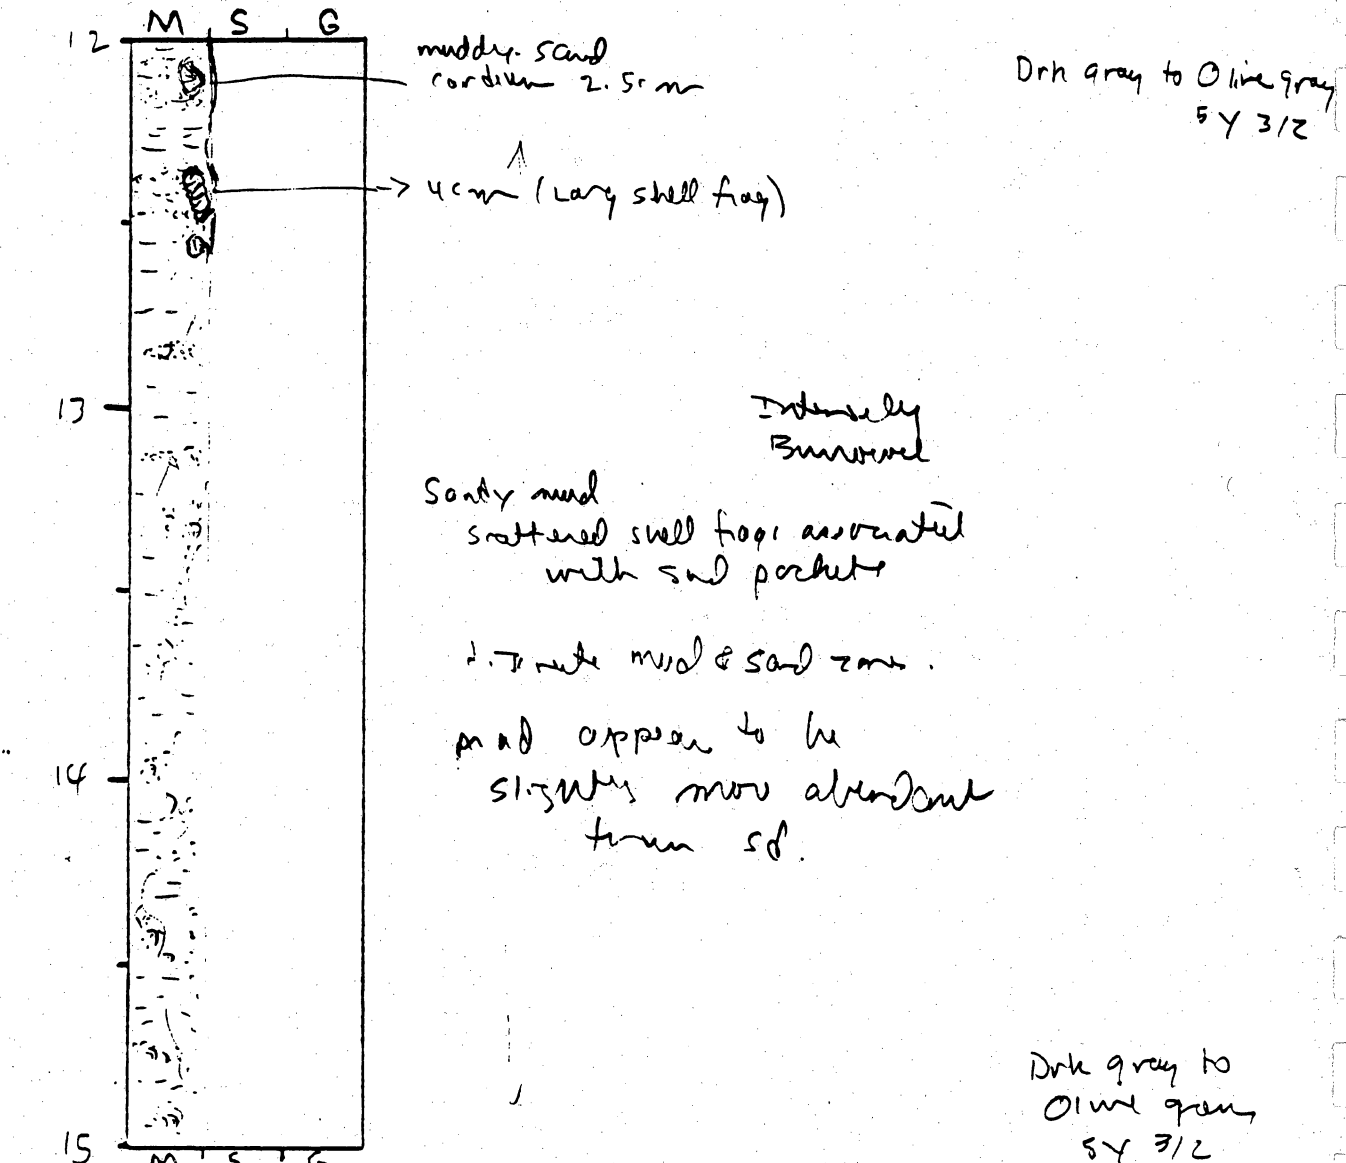 M S G
12
muddy sand
cardium 2.5cm
Drk gray to Olive gray
5Y 3/2
4cm (Large shell frag)
13
Intensely
Burrowed
Sandy mud
scattered shell frags associated
with sand pockets
mud & sand zones.
mud appear to be
14
slightly more abundant
than sd.
Drk gray to
Olive gray
5Y 3/2
15
M S G